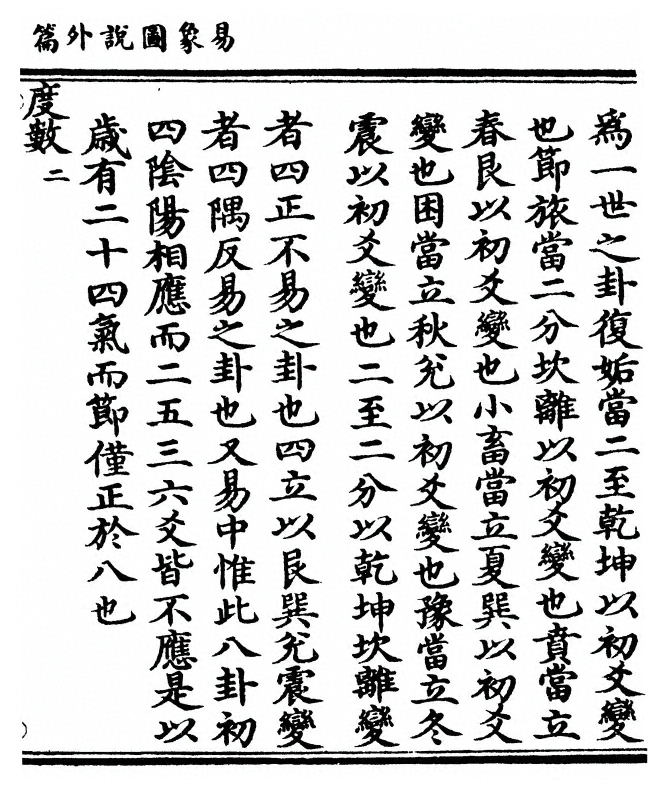 易象圖說外篇
爲一世之卦復姤當二至乾坤以初爻變
也節旅當二分坎離以初爻變也賁當立
春艮以初爻變也小畜當立夏巽以初爻
變也困當立秋兌以初爻變也豫當立冬
震以初爻變也二至二分以乾坤坎離變
者四正不易之卦也四立以艮巽兌震變
者四隅反易之卦也又易中惟此八卦初
四陰陽相應而二五三六爻皆不應是以
歲有二十四氣而節僅正於八也
度數二